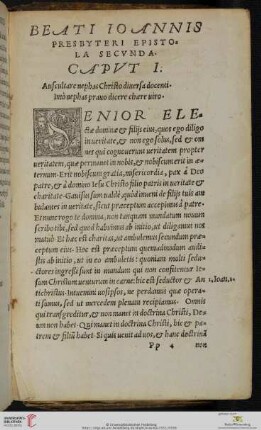 BEATI IOANNIS
PRESBYTERI EPISTO-
LA SECVNDA.
CAPVT I.
Auscultare nephas Christo diuersa docenti.
Imò nephas prauo dicere chaere viro.
SENIOR ELE-
ctæ dominæ & filijs eius, quos ego diligo
in ueritate, & non ego solus, sed & om
nes qui cognouerunt ueritatem propter
ueritatem, quæ permanet in nobis, & nobiscum erit in æ-
ternum. Erit nobiscum gratia, misericordia, pax à Deo
patre, & à domino Iesu Christo filio patris in ueritate &
charitate. Gauisus sum ualde, quòd inueni de filijs tuis am
bulantes in ueritate, sicut præceptum accepimus à patre.
Et nunc rogo te domina, non tanquam mandatum nouum
scribo tibi, sed quod habuimus ab initio, ut diligamus nos
mutuò. Et hæc est charitas, ut ambulemus secundum præ-
ceptum eius. Hoc est præceptum quemadmodum audi-
stis ab initio, ut in eo gradiamini: quoniam multi sedu-
ctores ingressi sunt in mundum qui non confitentur Ie-
sum Christum uenturum in carne: hic est seductor & An
1. Ioan. 2
tichristus. Intuemini uosipsos, ne perdamus quæ opera-
ti sumus, sed ut mercedem plenam recipiamus. Omnis
qui transgreditur, & non manet in doctrina Christi, De-
um non habet. Qui manet in doctrina Christi, hic & pa-
trem & filiū habet. Si quis uenit ad uos, & hanc doctrinā
Pp 4
non